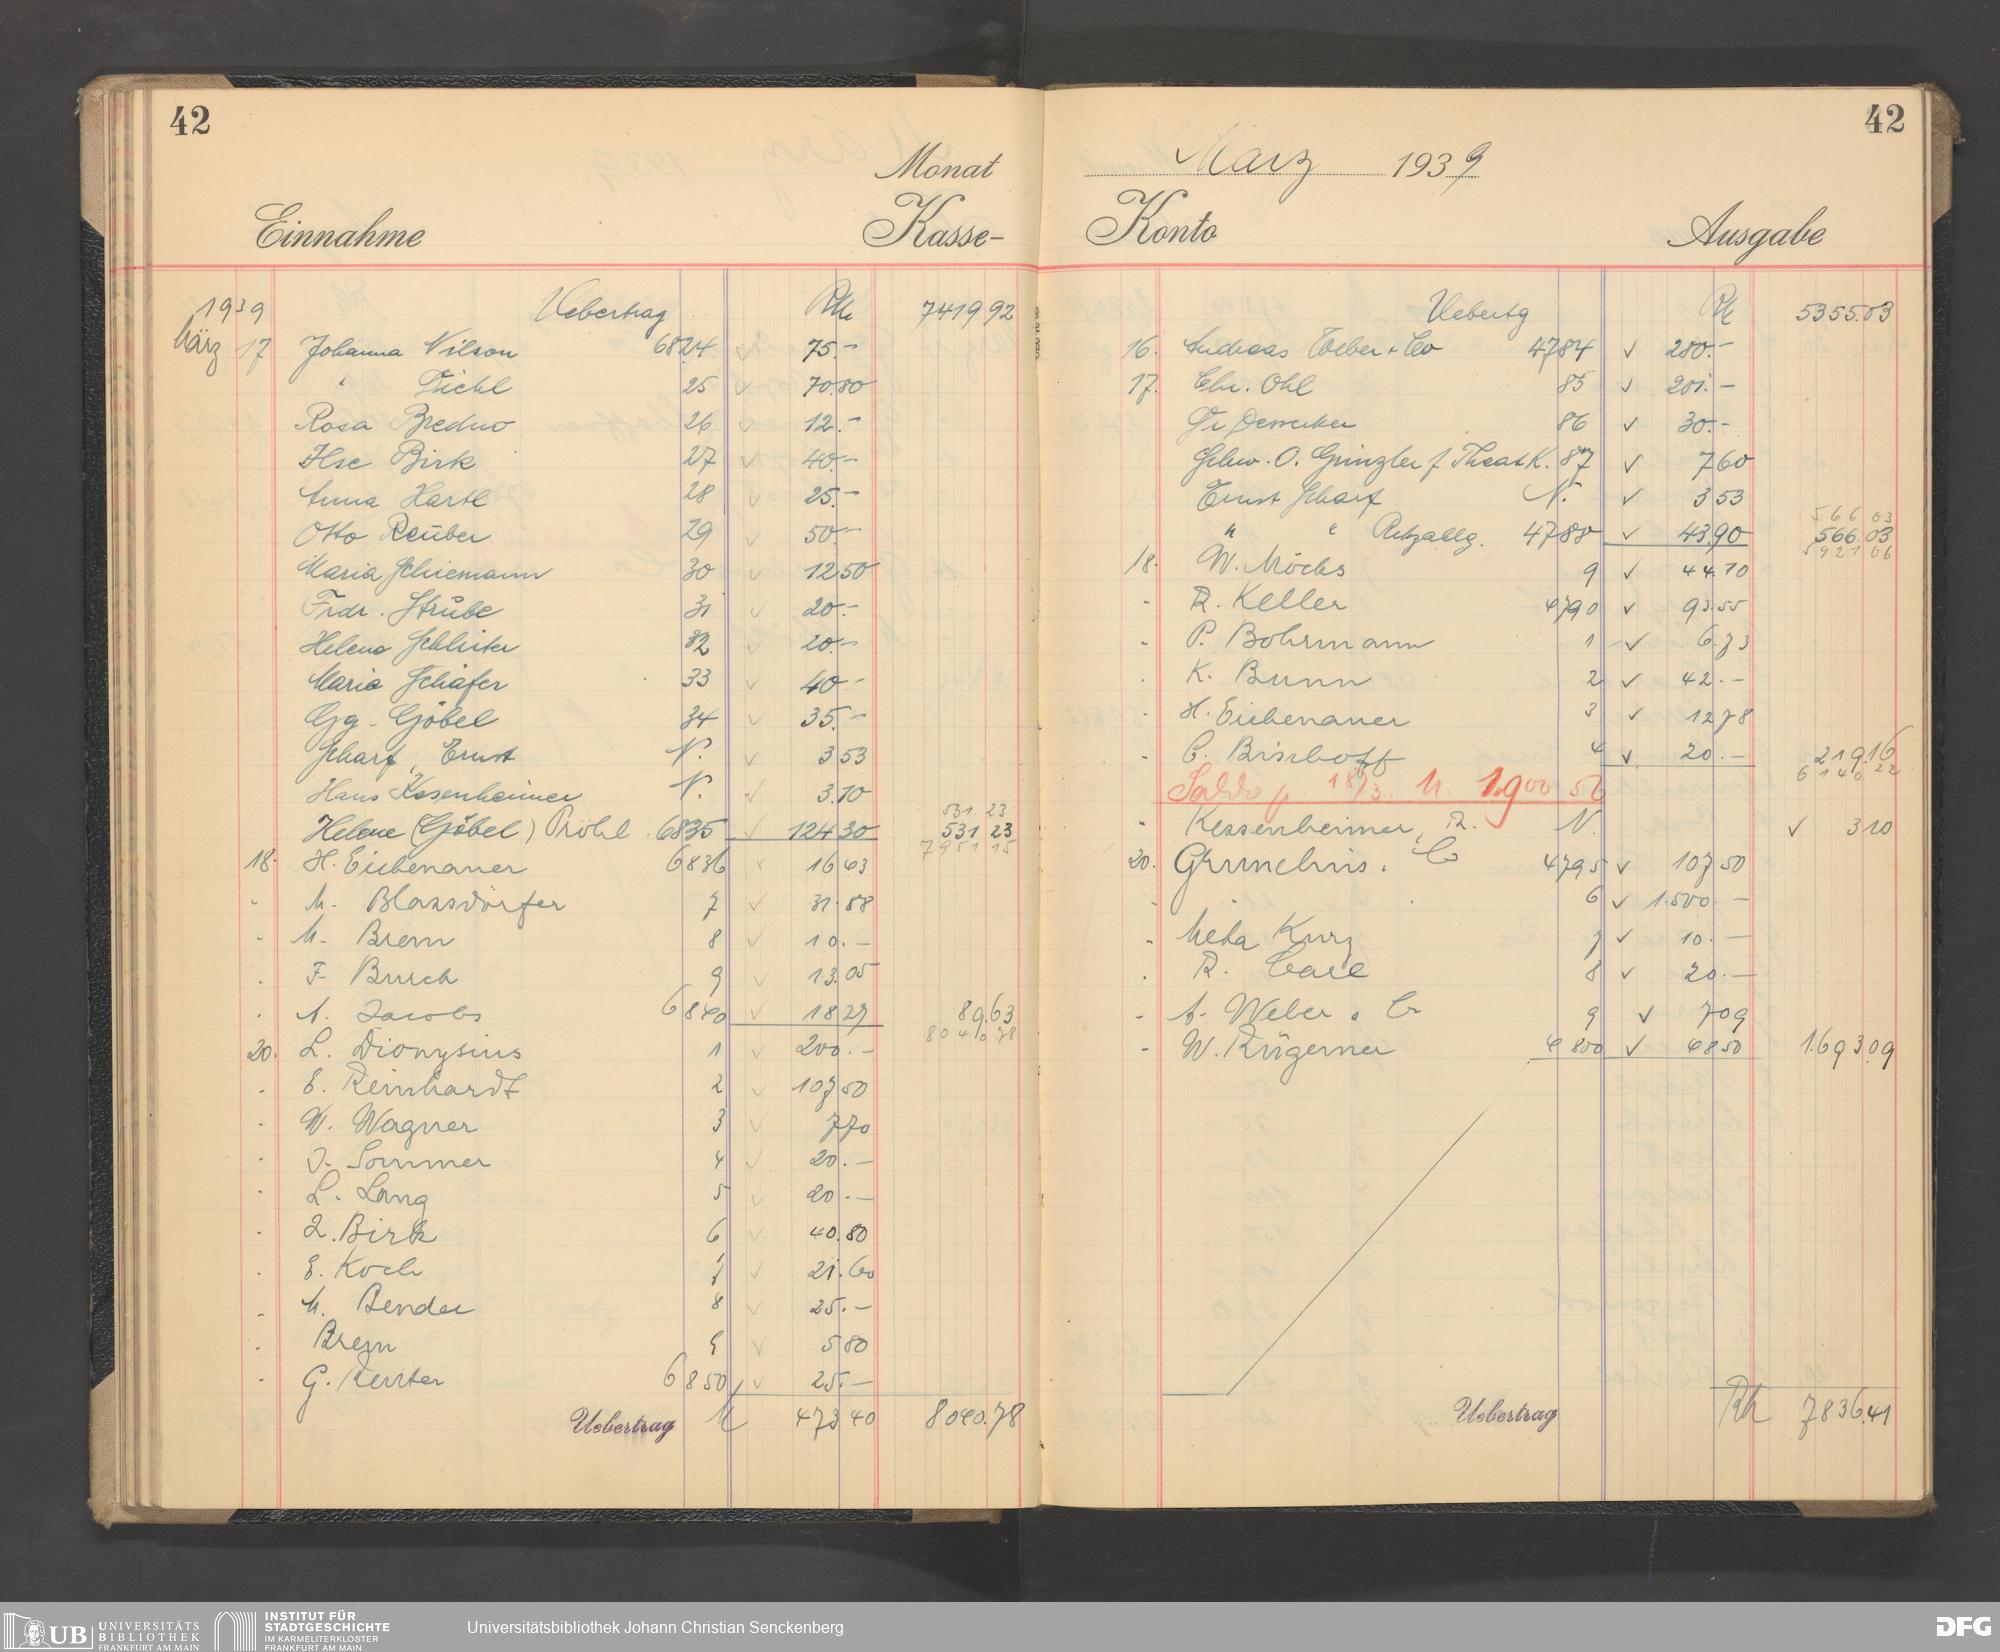 42
Monat
Einnahme Kasse-
1939 Uebertrag RM 7419 92
März 17 Johanna Nilson 6824 ✓ 75.-
" Dichl 25 ✓ 70.80
Rosa Bredno 26 ✓ 12.-
Ilse Birk 27 ✓ 40.-
Anna Hartl 28 ✓ 25.-
Otto Reuber 29 ✓ 50.-
Maria Schiemann 30 ✓ 12 50
Frdr. Strube 31 ✓ 20.-
Helena Schlüter 32 ✓ 20.-
Maria Schäfer 33 ✓ 40.-
Gg. Göbel 34 ✓ 35.-
Scharf, Ernst N. ✓ 3 53
Hans Kesenheimer N. ✓ 3.10
531 23
Helene (Göbel) Pröhl 6835 ✓ 124 30 531 23
7951 15
18. H. Eichenauer 6836 ✓ 16 43
- M. Blaasdörfer 7 ✓ 31.88
- M. Brem 8 ✓ 10.-
- F. Busch 9 ✓ 13.05
- A. Jacobs 6840 ✓ 18 27 89.63
8040.78
20. L. Dionysius 1 ✓ 200.-
- E. Reinhardt 2 ✓ 107 50
- W. Wagner 3 ✓ 7 70
- J. Sommer 4 ✓ 20.-
- L. Lang 5 ✓ 20.-
- I. Birk 6 ✓ 40.80
- E. Koch 7 ✓ 21.60
- M. Bender 8 ✓ 25.-
- Brem 9 ✓ 5 80
- G. Kenter 6850 ✓ 25.-
Uebertrag M 473 40 8040.78
42
März 1939
Konto Ausgabe
Uebertg RM 5355.03
16. Andreas Weber + Co 4784 ✓ 280.-
17. Chr. Ohl 85 ✓ 201.-
Dr 86 ✓ 30.-
Schw. O. Gringler f. Theat K. 87 ✓ 7 60
Ernst Scharf N. ✓ 3 53
566 03
" " Rückzallg. 4788 ✓ 43.90 566.03
5921 06
18. W. Möcks 9 ✓ 44.10
- R. Keller 4790 ✓ 93.55
- P. Bohrmann 1 ✓ 6.73
- K. Bunn 2 ✓ 42.-
- H. Eichenauer 3 ✓ 12 78
- C. Bischoff 4 ✓ 20.- 219.16
6140 22
Saldo p. 18/3. M. 1900 56
- Kessenheimer, R. N. ✓ 3 10
20. Grunelius & Co 4795 ✓ 107 50
- 6 ✓ 1.500.-
- Meta Kurz 7 ✓ 10.-
- R. Carl 8 ✓ 20.-
- A. Weber & Co 9 ✓ 7 09
- W. Krügerner 4800 ✓ 48 50 1.693.09
Uebertrag RM 7836.41
UB UNIVERSITÄTS
BIBLIOTHEK
FRANKFURT AM MAIN
INSTITUT FÜR
STADTGESCHICHTE
IM KARMELITERKLOSTER
FRANKFURT AM MAIN
Universitätsbibliothek Johann Christian Senckenberg
DFG